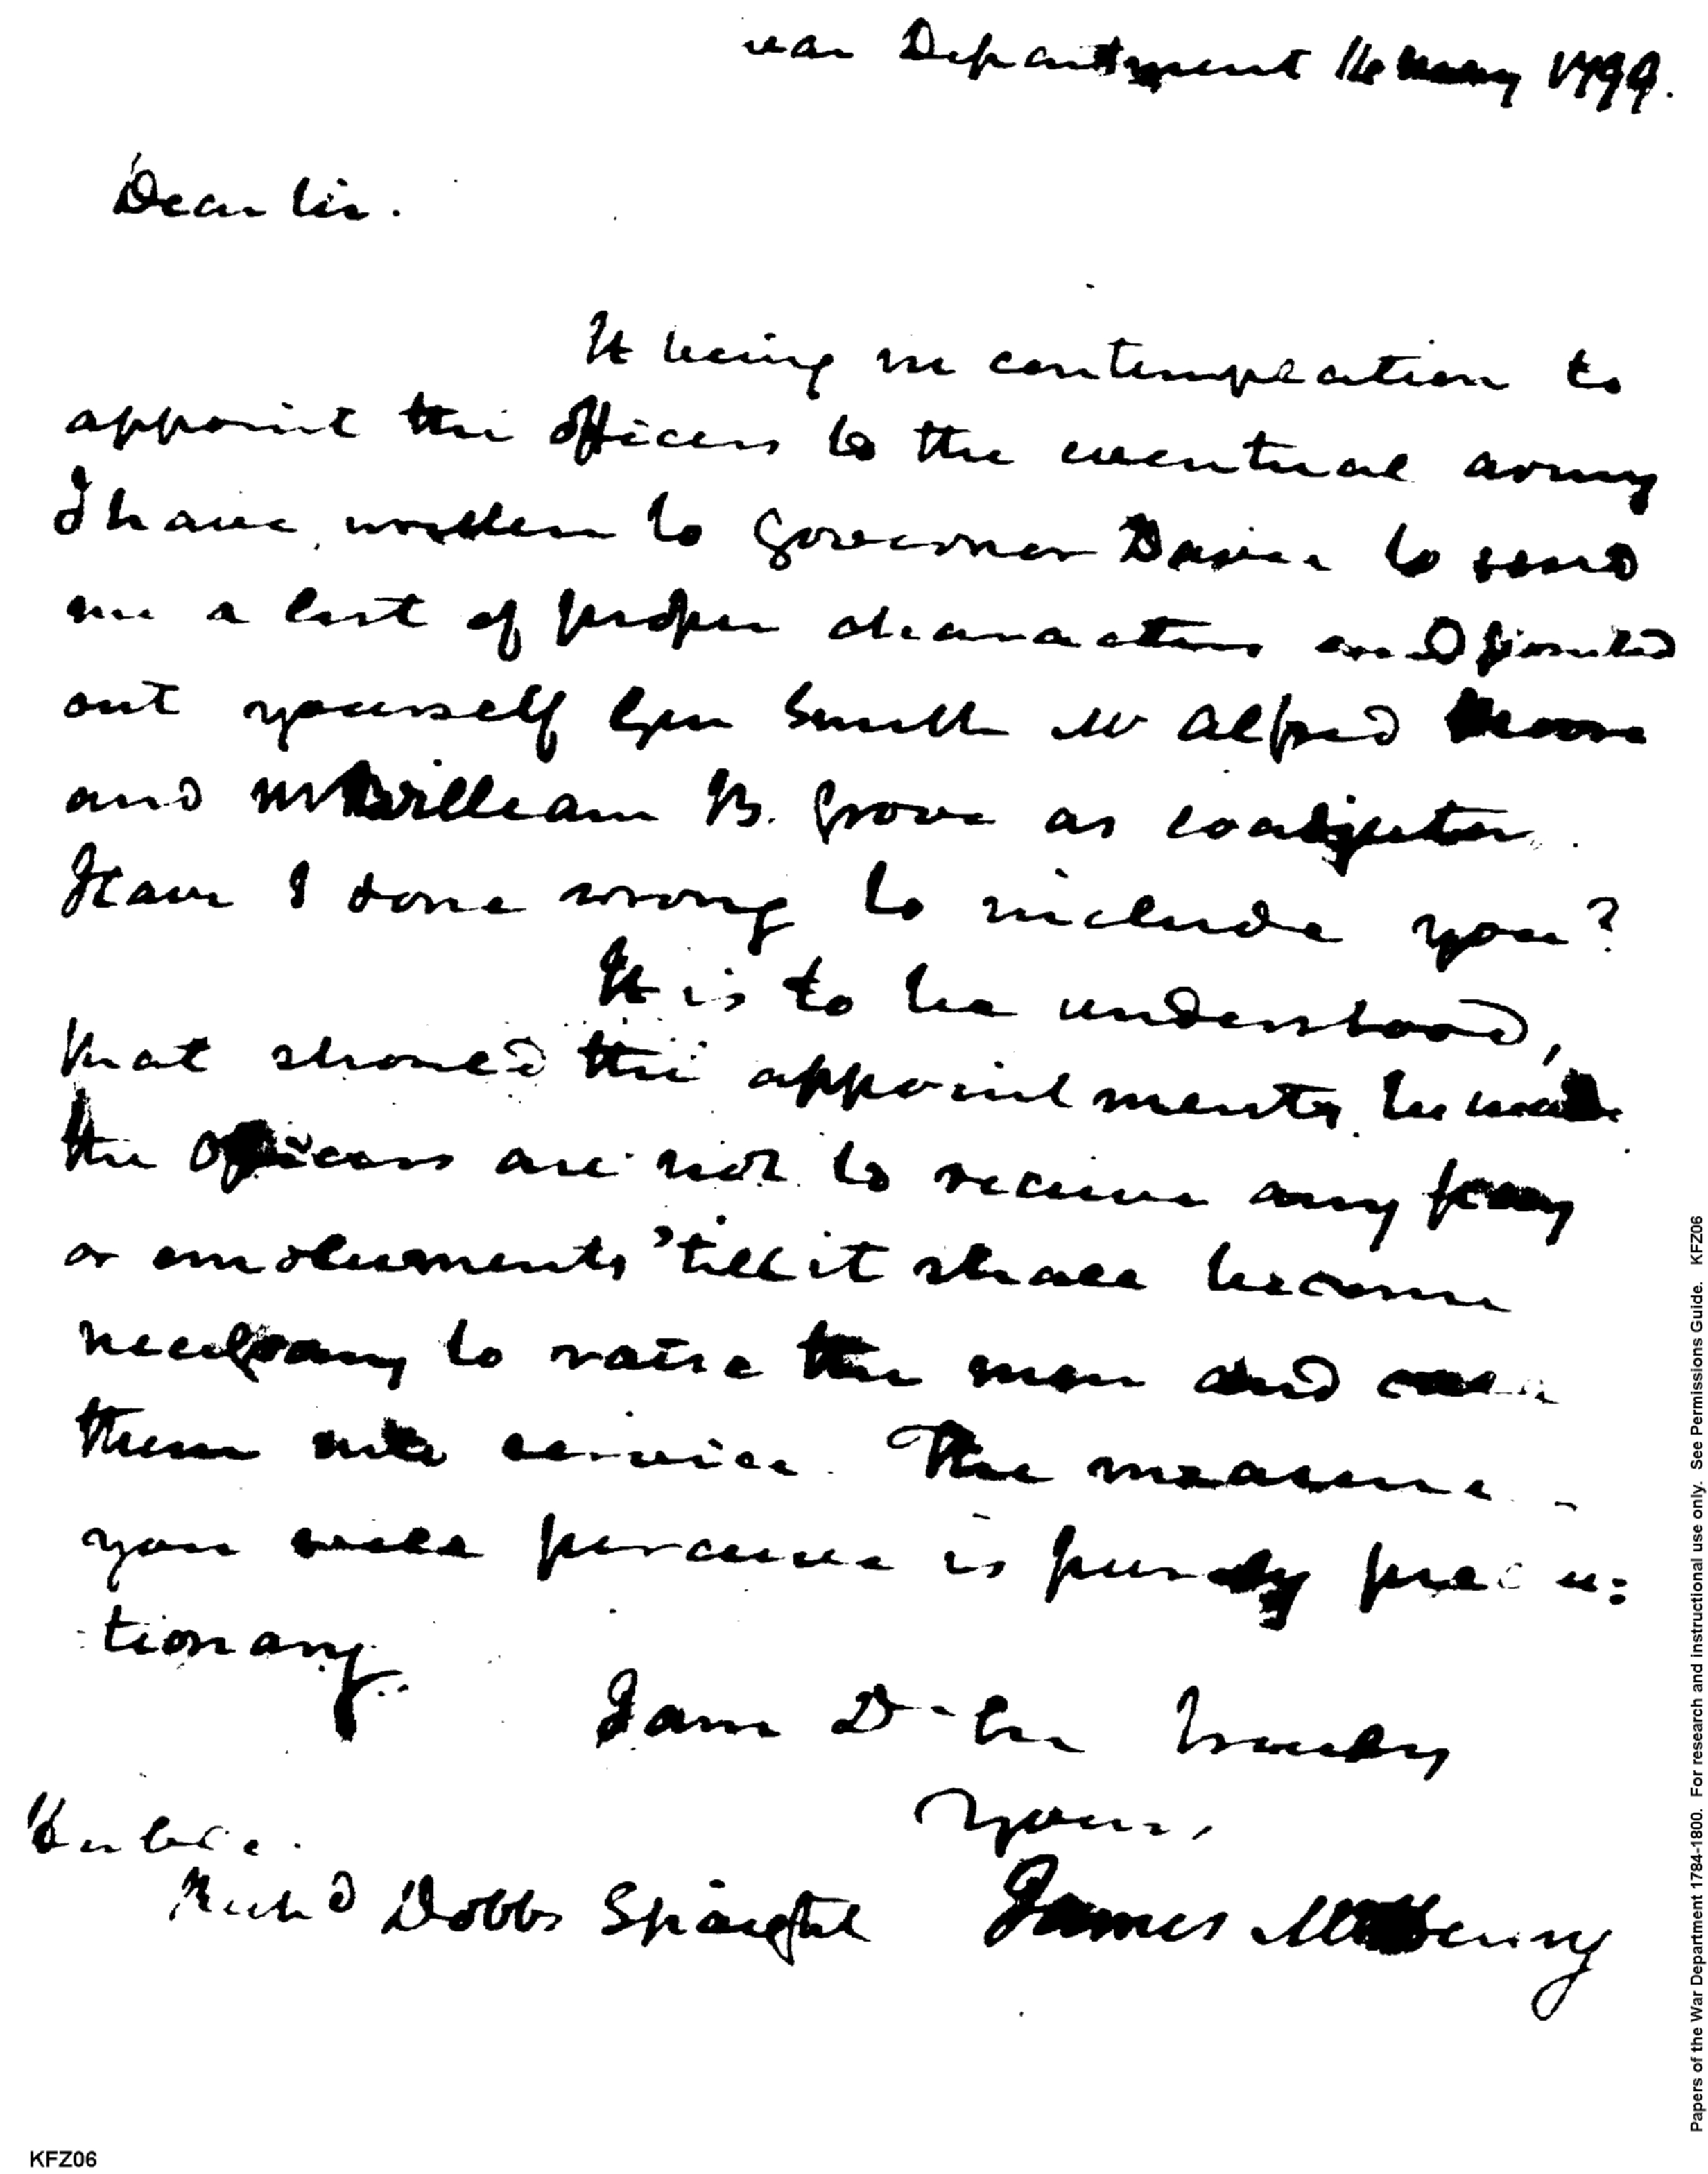 War Department 16 May 1799.
Dear Sir.
It being in contemplation to
appoint the officers to the eventual army
I have written to Governor Davie to send
me a list of proper characters and pointed
out yourself Gen Smith Mr Alfred Moore
and Mr William B. Grove as coadjutors.
Have I done wrong to include you?
It is to be understood,
that should the appointments be made
the officers are not to receive any pay
or emoluments 'till it shall become
necessary to raise the men and call
them into service. The measure
you will perceive is purely precau:
:tionary.
I am Dr Sir truly
Yours,
Honble.
Richd Dobbs Spaight James McHenry
KFZ06
Papers of the War Department 1784-1800. For research and instructional use only. See Permissions Guide. KFZ06